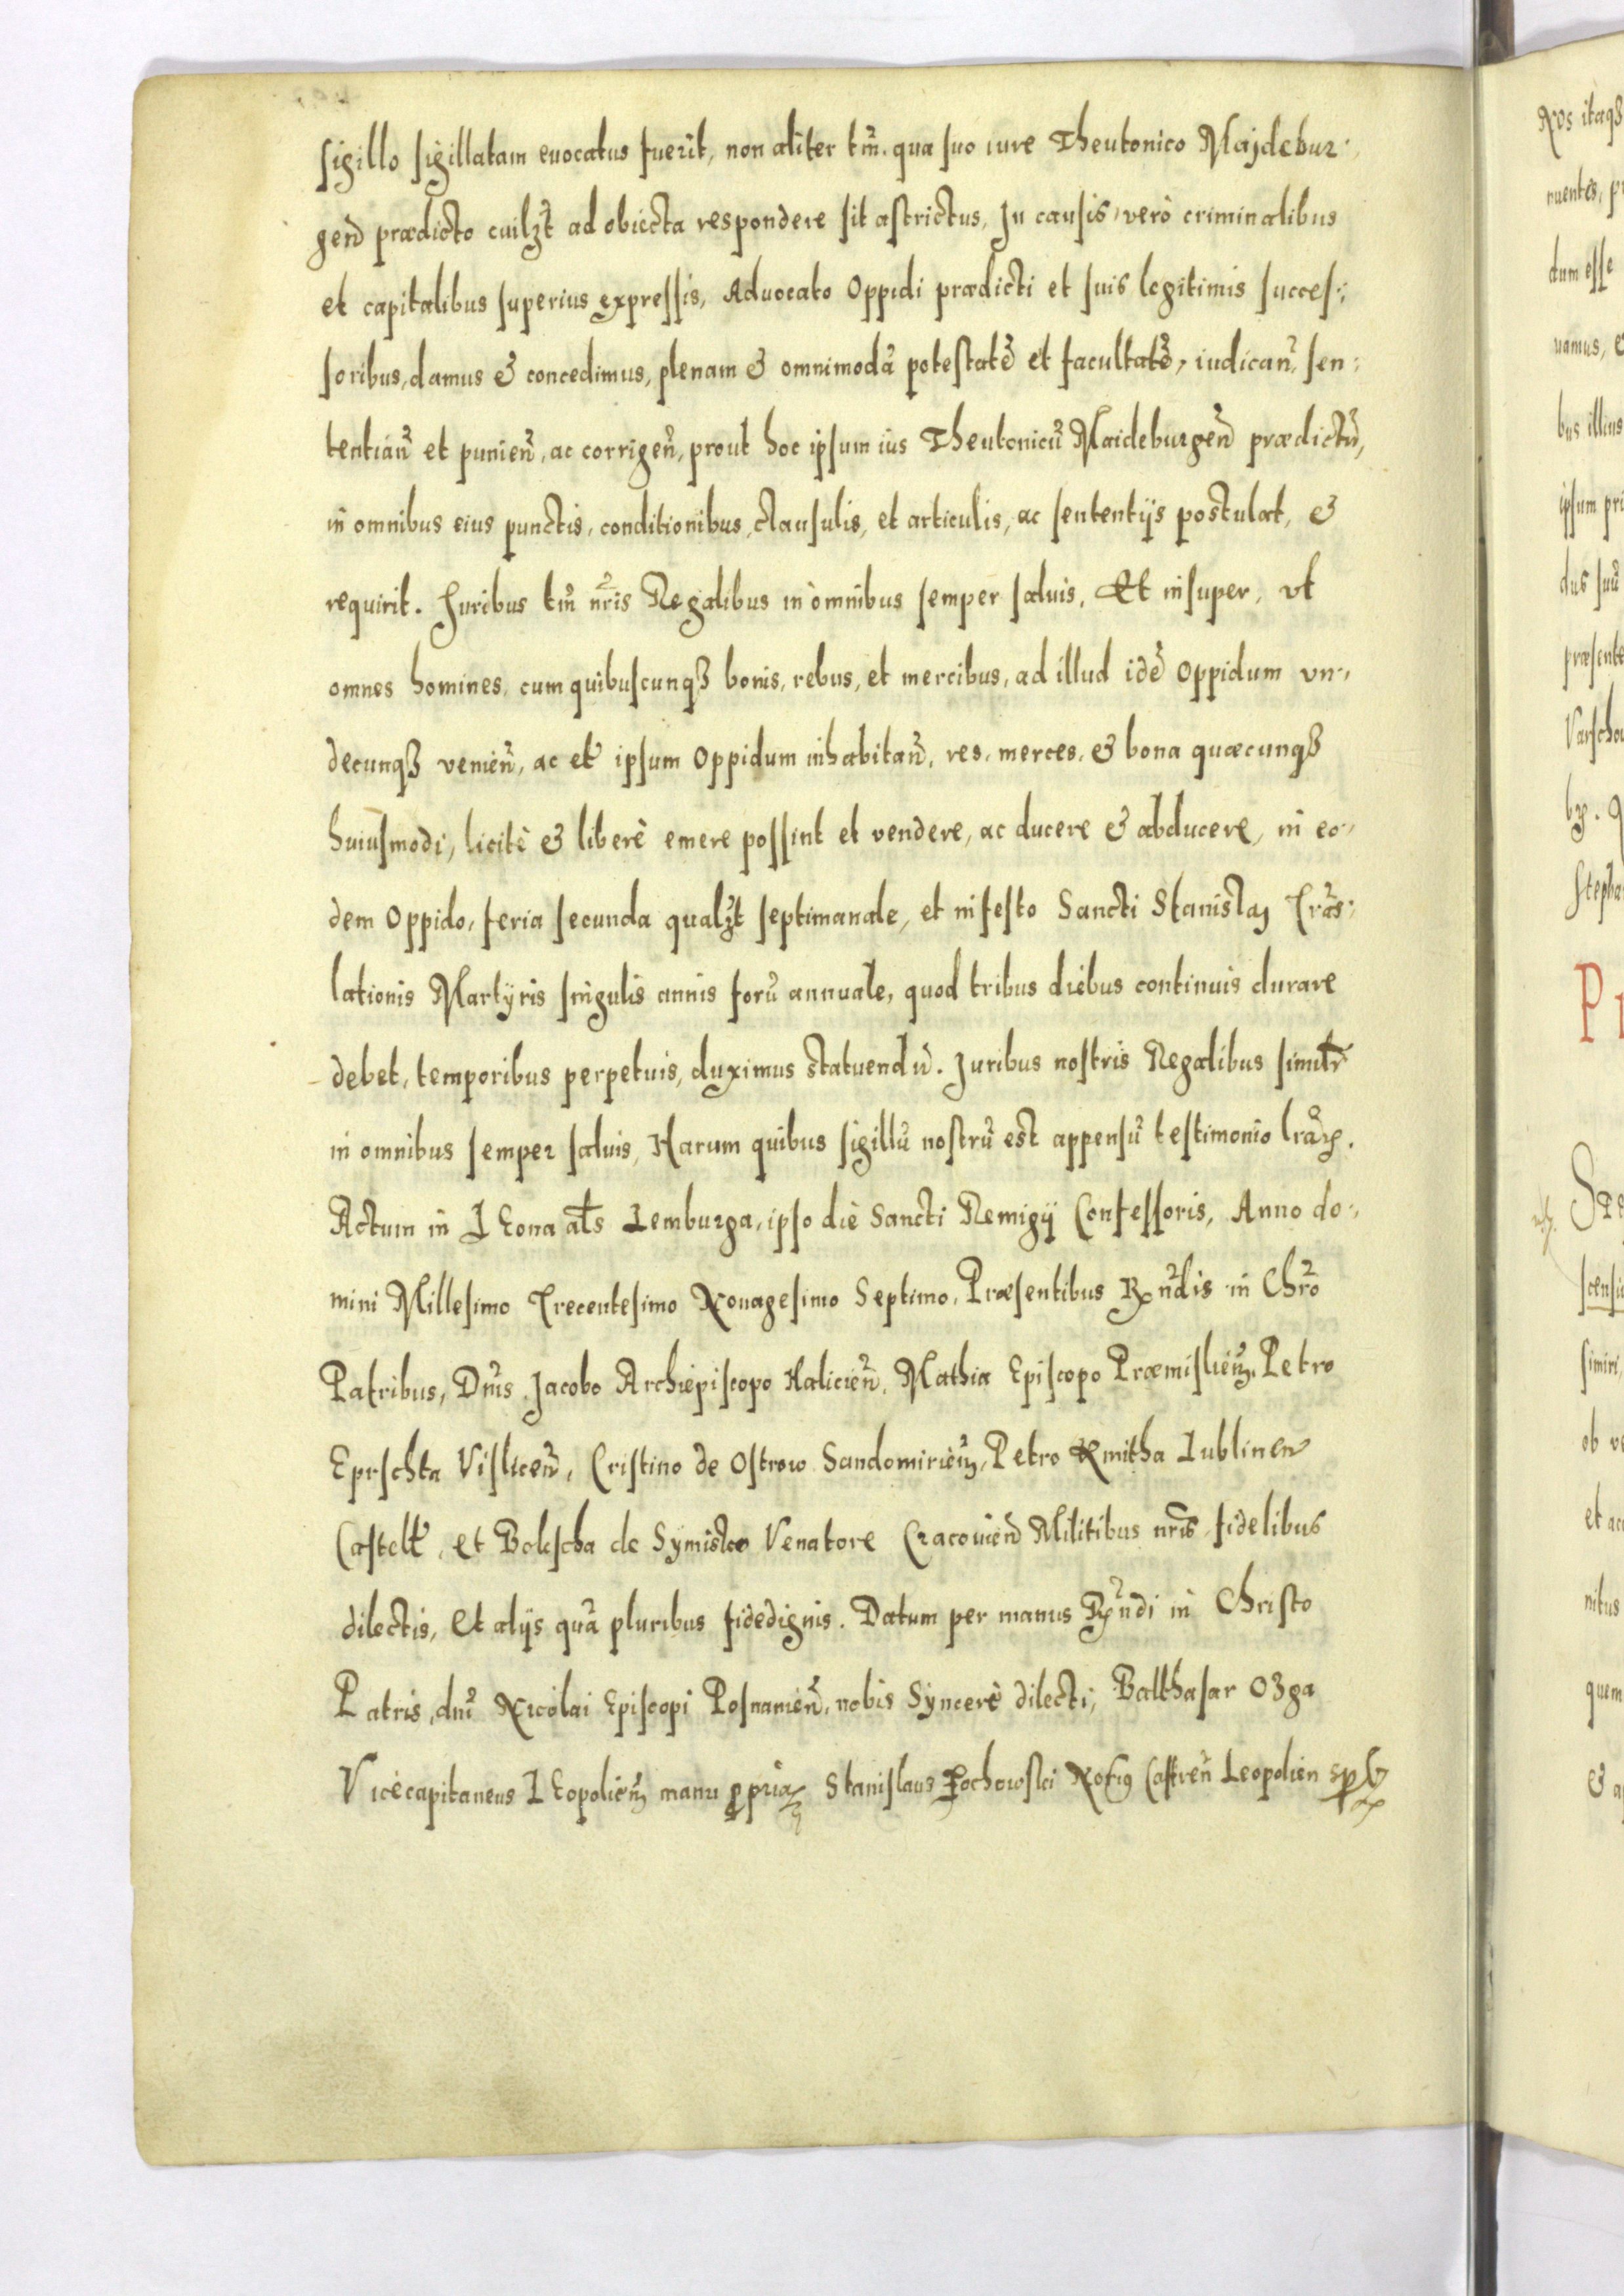 sigillo sigillatam euocatus fuerit, non aliter tm̃. qua suo iure Theutonico Majdebur:
geñ prædicto cuilzt ad obiecta respondere sit astrictus, In causis verò criminalibus
et capitalibus superius expressis, Aduocato Oppidi prædicti et suis legitimis succes:
soribus, damus & concedimus, plenam & omnimodã potestatẽ et facultatẽ, iudicañ, sen:
tentiañ et punieñ, ac corrigeñ, prout hoc ipsum ius Theutonicũ Maideburgeñ prædictũ,
in omnibus eius punctis, conditionibus, clausulis, et articulis, ac sententijs postulat, &
requirit. Juribus tm̃ nr̃is Regalibus in omnibus semper saluis, Et insuper, vt
omnes homines, cum quibuscunqȝ bonis, rebus, et mercibus, ad illud idẽ Oppidum vn:
decunqȝ venieñ, ac et ipsum Oppidum inhabitañ, res, merces, & bona quæcunqȝ
huiusmodi, licitè & liberè emere possint et vendere, ac ducere & abducere, in eo:
dem Oppido, feria secunda qualzt septimanale, et in festo Sancti Stanislaj Trãs:
lationis Martÿris singulis annis forũ annuale, quod tribus diebus continuis durare
debet, temporibus perpetuis, duximus statuendũ. Juribus nostris Regalibus similr̃
in omnibus semper saluis, Harum quibus sigillũ nostrũ est appensũ testimonio lr̃aꝝ.
Actum in Leona als Lemburga, ipso die Sancti Remigij Confessoris, Anno do:
mini Millesimo Trecentesimo Nonagesimo Septimo, Præsentibus Rñdis in Chrõ
Patribus, Dñis Jacobo Archiepiscopo Halicieñ, Mathia Episcopo Præmislień, Petro
Eprschta Visliceñ, Cristino de Ostrow Sandomirieñ, Petro Kmitha Lublinen
Castell, et Bolescha de Symisleo Venatore Cracouieñ Militibus nr̃is fidelibus
dilectis, Et alijs quã pluribus fidedignis. Datum per manus Rñdi in Christo
Patris, dni Nicolai Episcopi Posnanieñ, nobis Synceré dilecti, Balthasar Ozga
Vicecapitaneus Leopolień manu ꝓpria Stanislaus Pochowski Notus Castreñ Leopolien